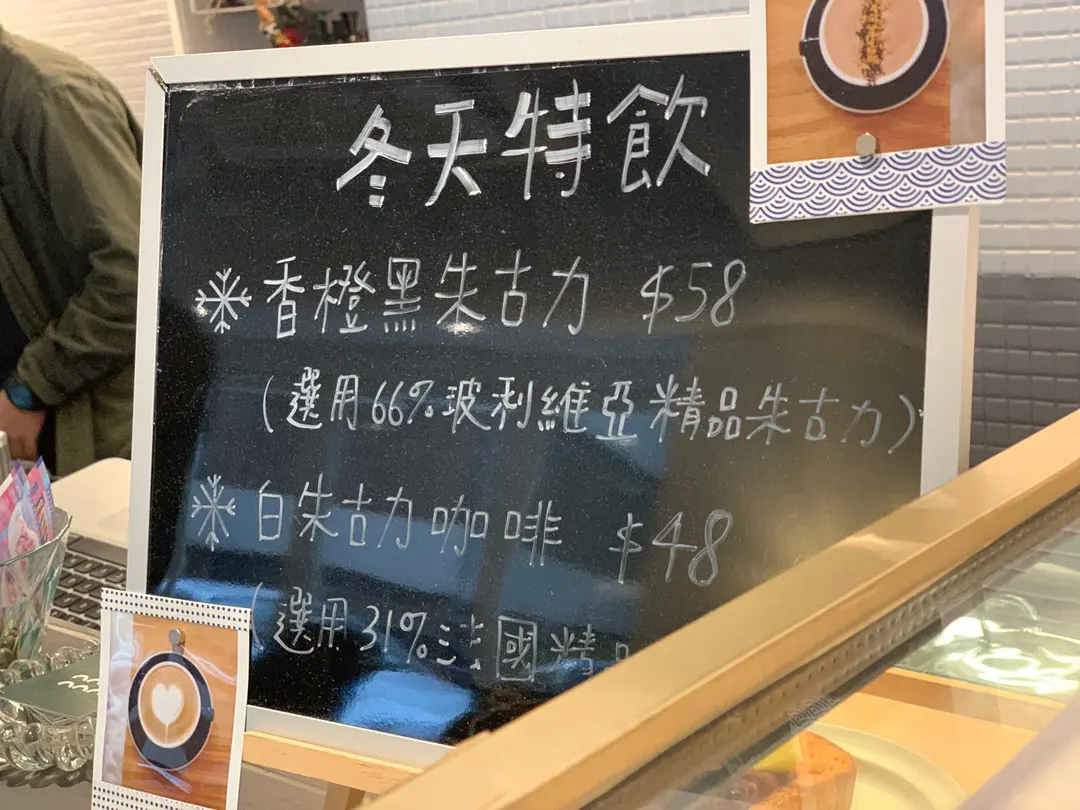 冬天特飲
香橙黑朱古力 $58
(選用66%玻利維亞精品朱古力)
白朱古力咖啡 $48
(選用31%法國精品